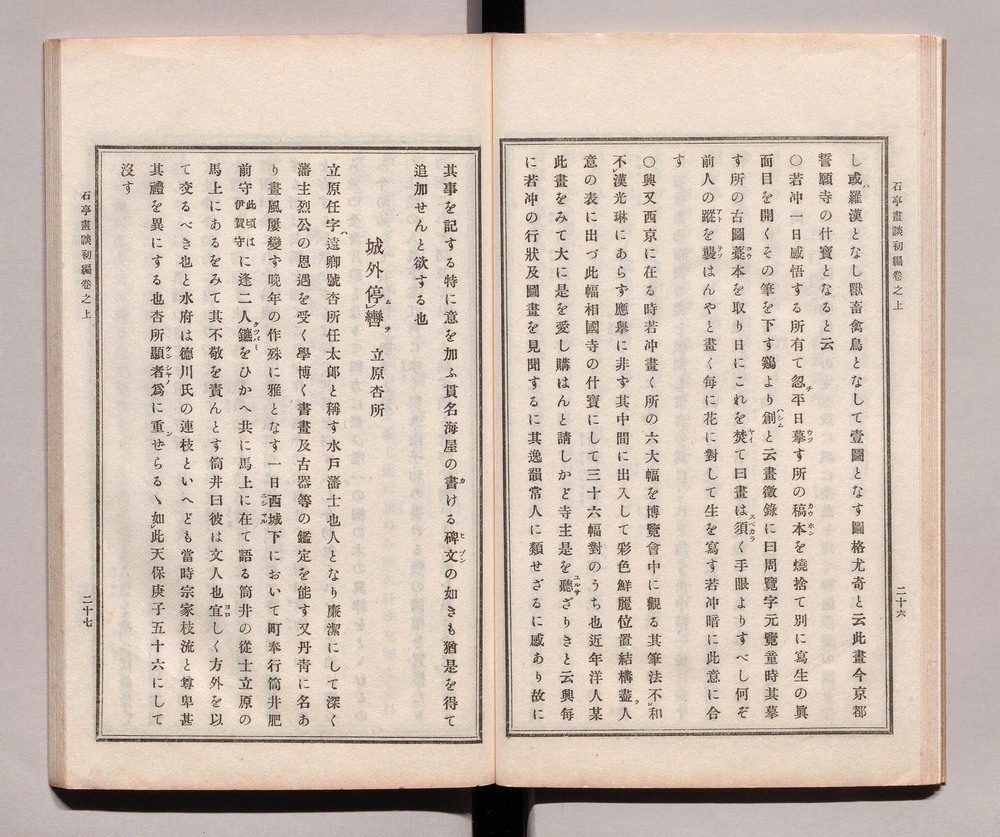 石亭畫談初編卷之上
二十六
し或羅漢となし獸畜禽鳥となして壹圖となす圖格尤奇と云此畫今京都
誓願寺の什寶となると云
〇若冲一日感悟する所有て忽平日摹す所の稿本を燒捨て別に寫生の眞
面目を開くその筆を下す鷄より創と云畫徵錄に曰周覽字元覽童時其摹
す所の古圖藁本を取り日にこれを焚て曰畫は須く手眼よりすべし何ぞ
前人の蹤を襲はんやと畫く每に花に對して生を寫す若冲暗に此意に合
す
〇興又西京に在る時若冲畫く所の六大幅を博覽會中に觀る其筆法不和
不漢光琳にあらず應擧に非ず其中間に出入して彩色鮮麗位置結構盡人
意の表に出づ此幅相國寺の什寶にして三十六幅對のうち也近年洋人某
此畫をみて大に是を愛し購はんと請しかど寺主是を聽ざりきと云興每
に若冲の行狀及圖畫を見聞するに其逸韻常人に類せざるに感あり故に
其事を記する特に意を加ふ貫名海屋の書ける碑文の如きも猶是を得て
追加せんと欲する也
城外停轡 立原杏所
立原任字遠卿號杏所任太郎と稱す水戶藩士也人となり廉潔にして深く
藩主烈公の恩遇を受く學博く書畫及古器等の鑑定を能す又丹靑に名あ
り畫風屢變す晚年の作殊に雅となす一日西城下において町奉行筒井肥
前守此頃は伊賀守に逢二人鑣をひかへ共に馬上に在て語る筒井の從士立原の
馬上にあるをみて其不敬を責んとす筒井曰彼は文人也宜しく方外を以
て交るべき也と水府は德川氏の連枝といへども當時宗家枝流と尊卑甚
其禮を異にする也杏所顯者爲に重せらるゝ如此天保庚子五十六にして
沒す
石亭畫談初編卷之上
二十七